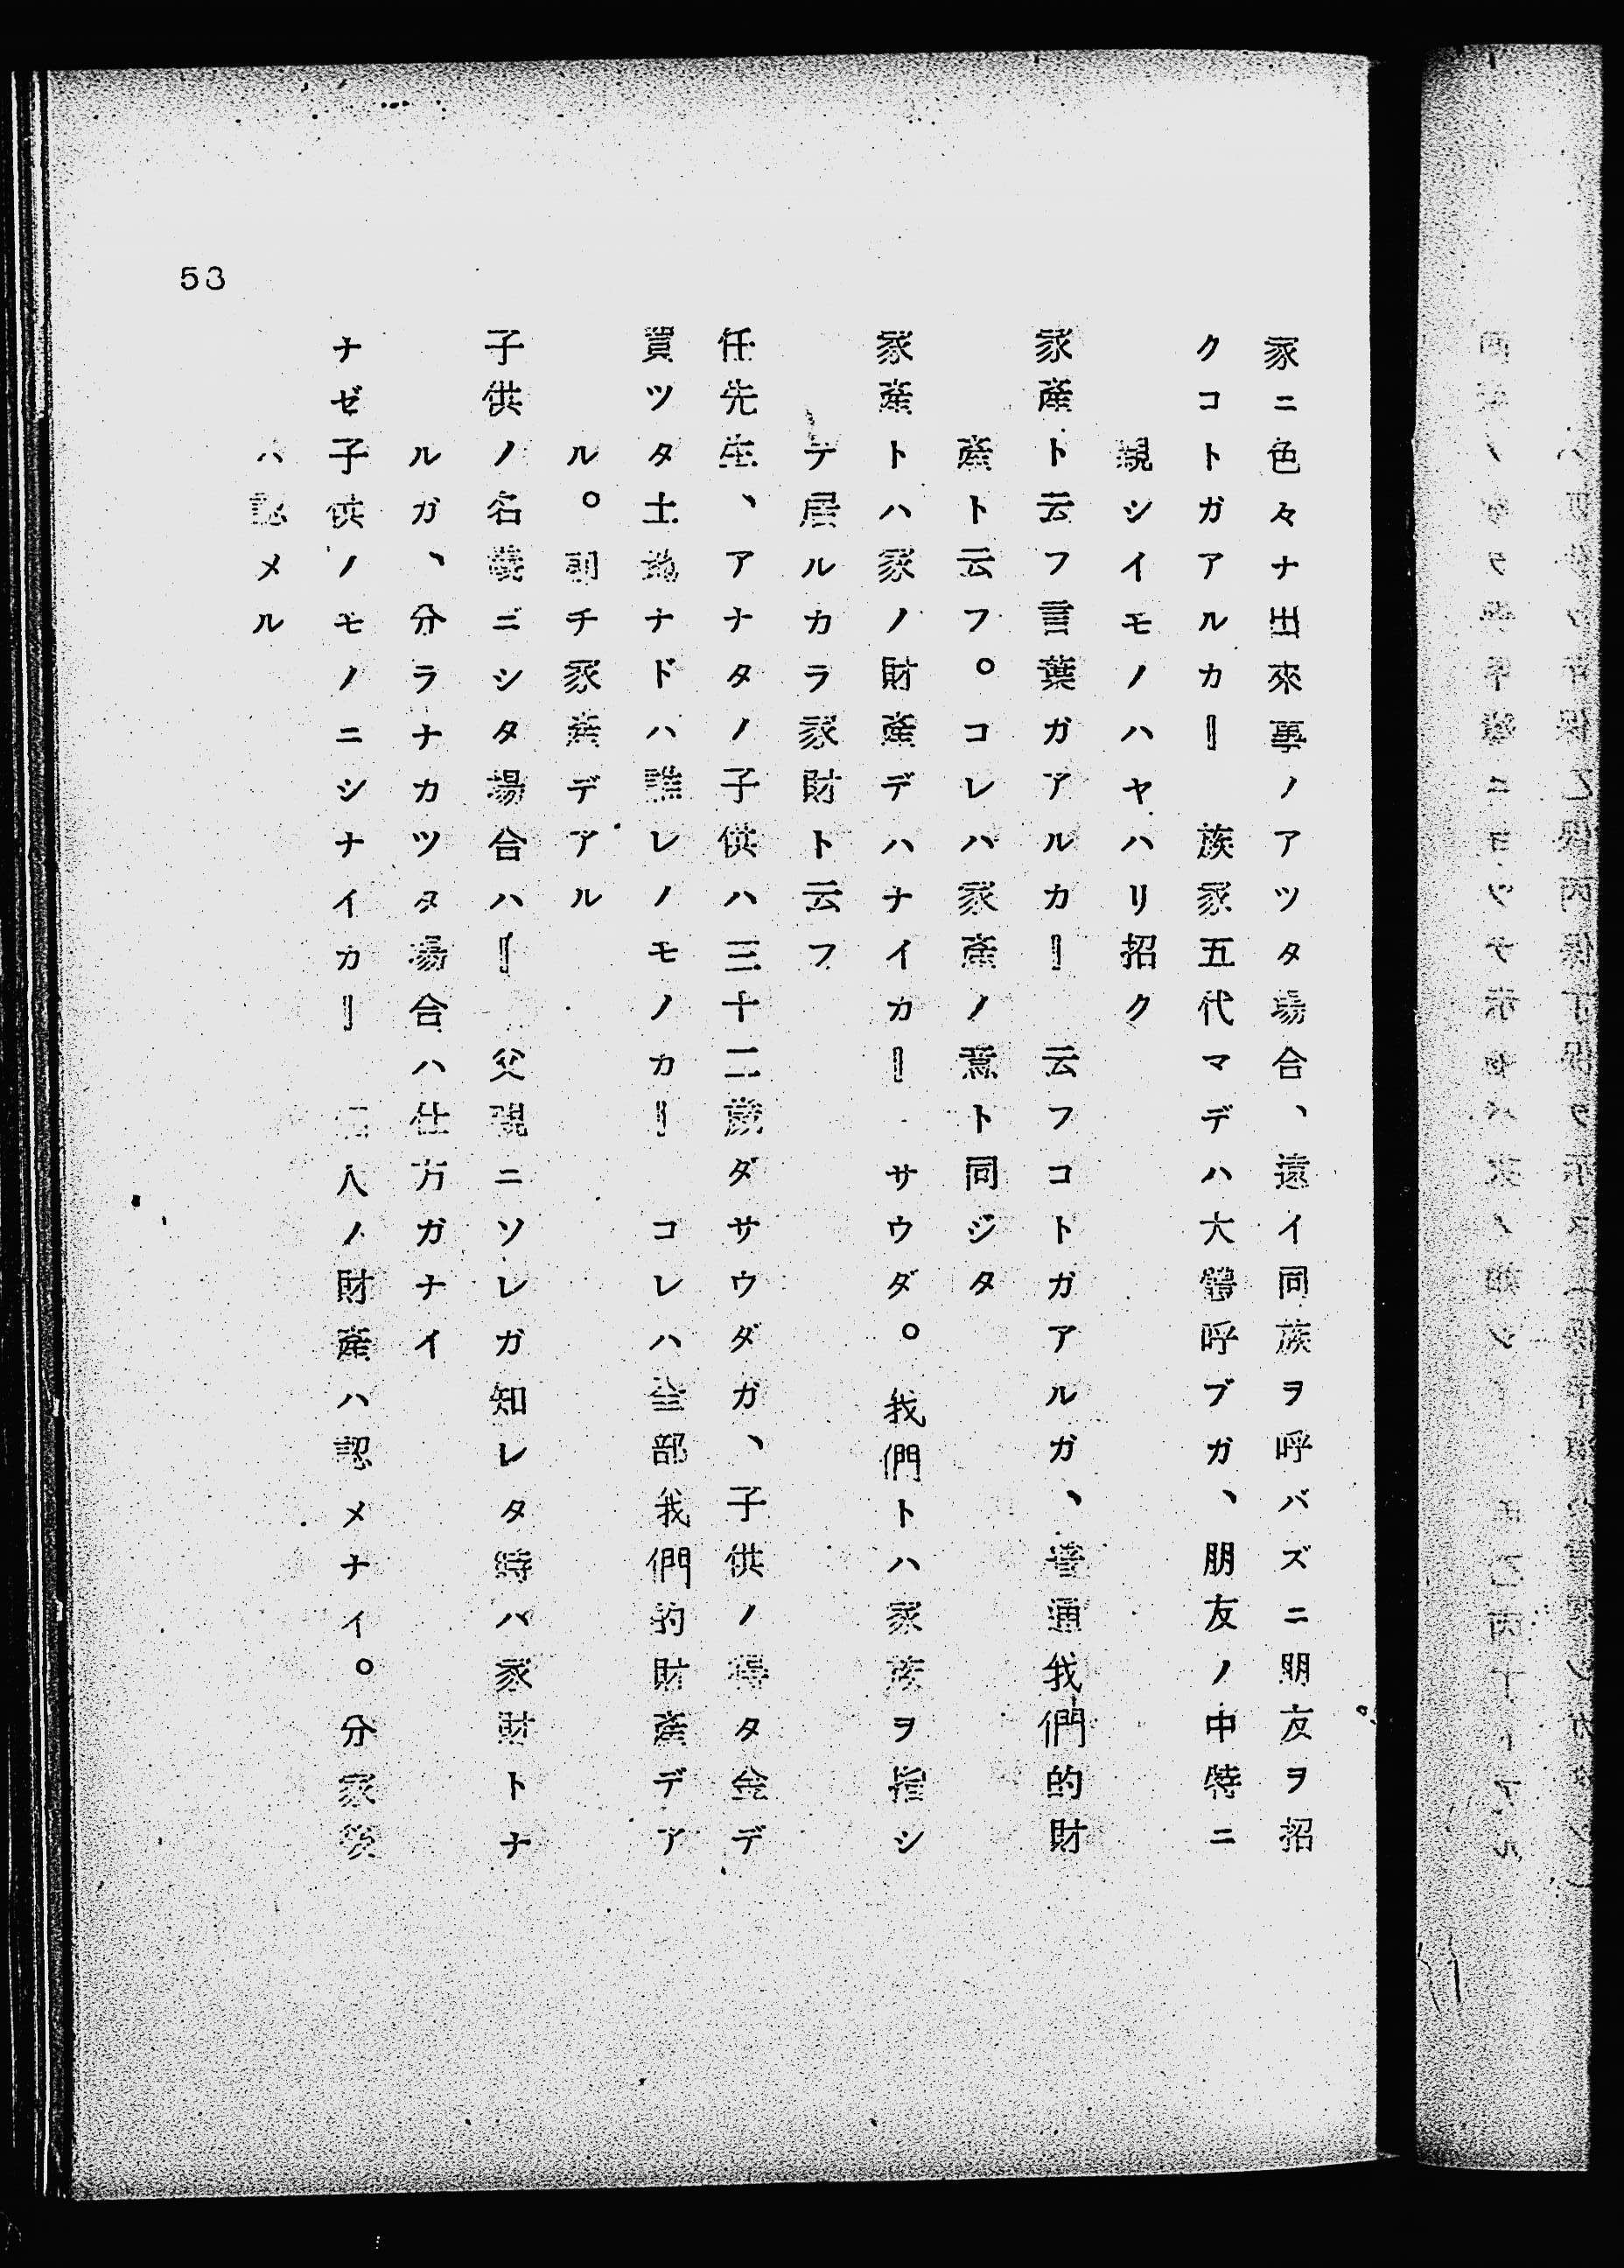 家ニ色々ナ出來事ノアツタ場合、遠イ同族ヲ呼バズニ朋友ヲ招
クコトガアルカ＝　族家五代マデハ大體呼ブガ、朋友ノ中特ニ
親シイモノハヤハリ招ク
家産ト云フ言葉ガアルカ＝　云フコトガアルガ、普通我們的財
産ト云フ。コレハ家産ノ意ト同ジタ
家産トハ家ノ財産デハナイカ＝　サウダ。我們トハ家族ヲ指シ
テ居ルカラ家財ト云フ
任先生、アナタノ子供ハ三十二歳ダサウダガ、子供ノ得タ金デ
買ツタ土地ナドハ誰レノモノカ＝　コレハ全部我們的財産デア
ル。卽チ家産デアル
子供ノ名義ニシタ場合ハ＝　父親ニソレガ知レタ時ハ家財トナ
ルガ、分ラナカツタ場合ハ仕方ガナイ
ナゼ子供ノモノニシナイカ＝　人ノ財産ハ認メナイ。分家後
ハ認メル
53